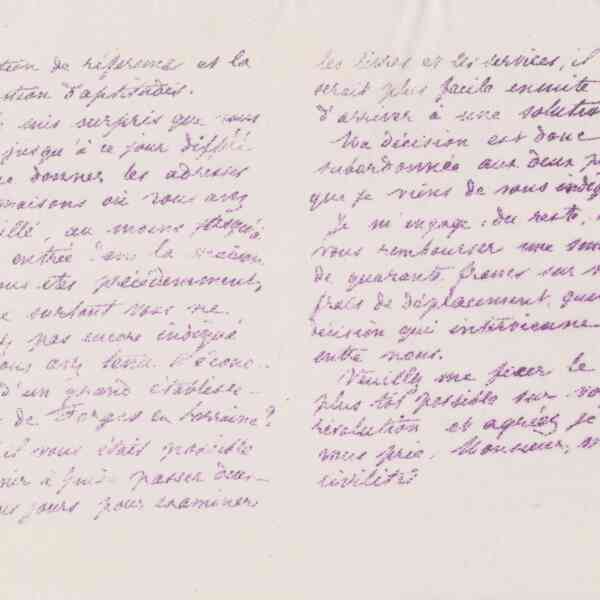 tion de référence et la
stion d'aptitudes.
suis surpris que vous
jusqu'à ce jour différé
donner les adresses
maisons où vous avez
illé, au moins jusqu'à
entrée dans la maison
ous êtes précédemment,
surtout vous ne
pas encore indiqué
ous avez tenu l'écono-
d'un grand établisse-
de Forges en Lorraine?
il vous était possible
nir à passer deux
jours pour examiner
les livres et les services, il
serait plus facile ensuite
d'arriver à une solution
Ma décision est donc
subordonnée aux deux p
que je viens de vous indiq
Je m'engage, du reste,
vous rembourser une som
de quarante francs sur v
frais de déplacement, que
décision qui intervienne
entre nous.
Veuillez me fixer le
plus tôt possible sur vo
résolution et agréez, je
vous prie, Monsieur, m
civilités